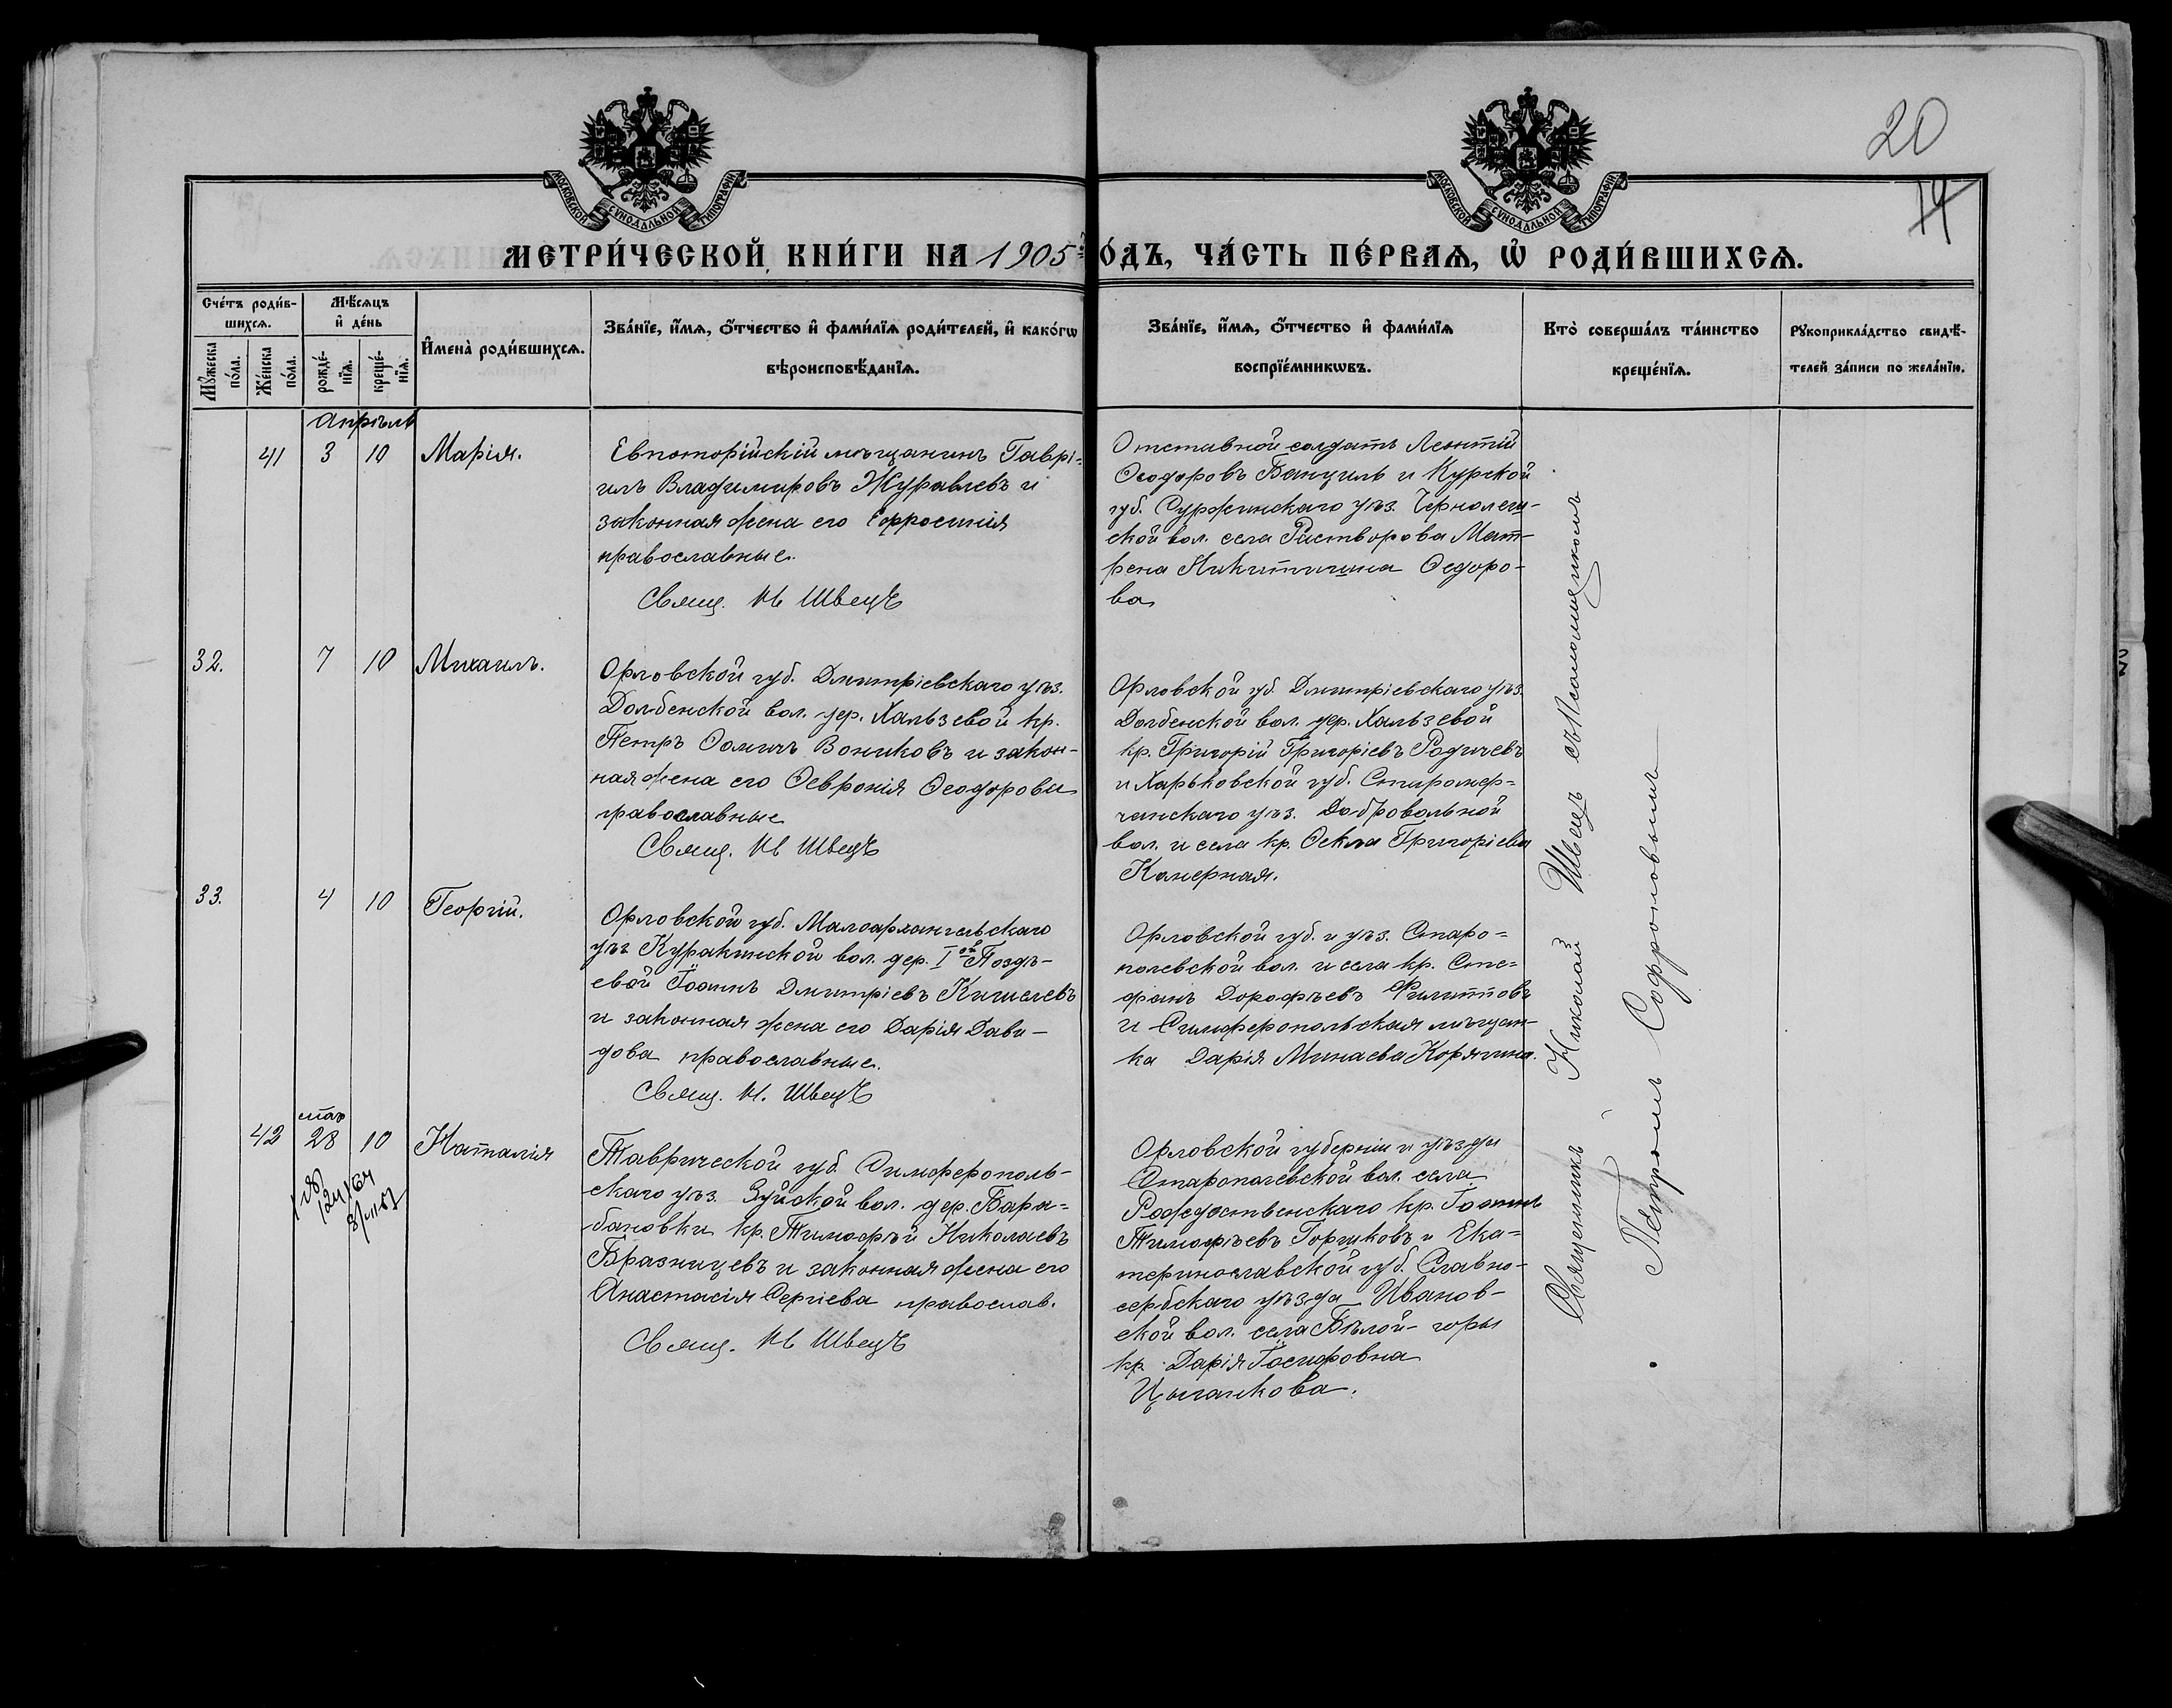 20
14
МОСКОВСКОЙ СУНОДАЛЬНОЙ ТИПОГРАФІИ
МОСКОВСКОЙ СУНОДАЛЬНОЙ ТИПОГРАФІИ
МЕТРИ́ЧЕСКОЙ КНИ́ГИ НА 1905 О́ДЪ, ЧА́СТЬ ПЕ́РВАѦ, Ѡ҆ РОДИ́ВШИХСѦ.
Сче́тъ роди́в-
шихсѧ.
Мѣ́сѧцъ
и҆ де́нь
Мꙋ́жеска по́ла.
Же́нска по́ла.
рожде́-
нїѧ.
креще́-
нїѧ.
И҆мена̀ роди́вшихсѧ.
Зва́нїе, и҆́мѧ, ѻ҆́тчество и҆ фами́лїѧ роди́телей, и҆ како́гѡ
вѣроисповѣ́данїѧ.
Зва́нїе, и҆́мѧ, ѻ҆́тчество и҆ фами́лїѧ
воспрїе́мникѡвъ.
Кто̀ соверша́лъ та́инство
креще́нїѧ.
Рꙋкоприкла́дство свидѣ́-
телей за́писи по жела́нїю.
Апрѣль
41 3 10 Марія.
Евпаторійскій мѣщанинъ Гаврі-
илъ Владимировъ Журавлевъ и
законная жена его Ефросинія
православные.
Свящ. Н Швецъ
Отставной солдатъ Леонтій
Ѳеодоровъ Банциль и Курской
губ. Суджинскаго уѣз.
ской вол. села Растворова Мат-
рена Никитична Ѳедоро-
ва
32. 7 10 Михаилъ.
Орловской губ. Дмитріевскаго уѣз.
Долбенской вол. дер. Хальзевой кр.
Петръ Ѳомичъ Вониковъ и закон-
ная жена его Ѳевронія Ѳеодорова
православные
Свящ. Н Швецъ
Орловской губ Дмитріевскаго уѣз.
Долбенской вол. дер. Хальзевой
кр. Григорій Григоріевъ Родичевъ
и Харьковской губ.
чанскаго уѣз. Добровольной
вол. и села кр. Ѳекла Григоріева
33. 4 10 Георгій.
Орловской губ. Малоархангельскаго
уѣз Куракинской вол. дер. I ой Поздѣ-
евой Іоаннъ Дмитріевъ Киселевъ
и законная жена его Дарія Дави-
дова православные.
Свящ. Н. Швецъ
Орловской губ. и уѣз. Старо-
полевской вол. и села кр. Сте-
фанъ Дорофѣевъ Филипповъ
и Симферопольская мѣщан-
ка Дарія Минаева Корячина.
мар
42 28 10 Наталія
Таврической губ. Симферополь-
скаго уѣз. Зуйской вол. дер. Бара-
бановки кр. Тимофѣй Николаевъ
Бразницевъ и законная жена его
Анастасія Сергіева православ.
Свящ. Н Швецъ
Орловской губерніи и уѣзда
Старополевской вол. села
Рождественскаго кр. Іоаннъ
Тимофѣевъ Горшковъ и Ека-
теринославской губ. Славно-
сербскаго уѣзда Иванов-
ской вол. села Бѣлой-горы
кр. Дарія Іосифовна
Цыганкова.
Священникъ Николай Швецъ съ Псаломщикомъ
Петромъ Софроновымъ